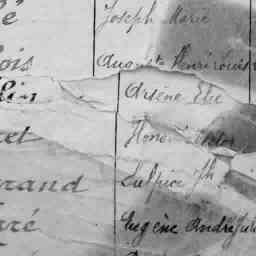 é Joseph Marie
ois Auguste Henri Louis
lin Arsène Élie
et Honoré
rand Sulpice Jh
aré Eugène André Jul